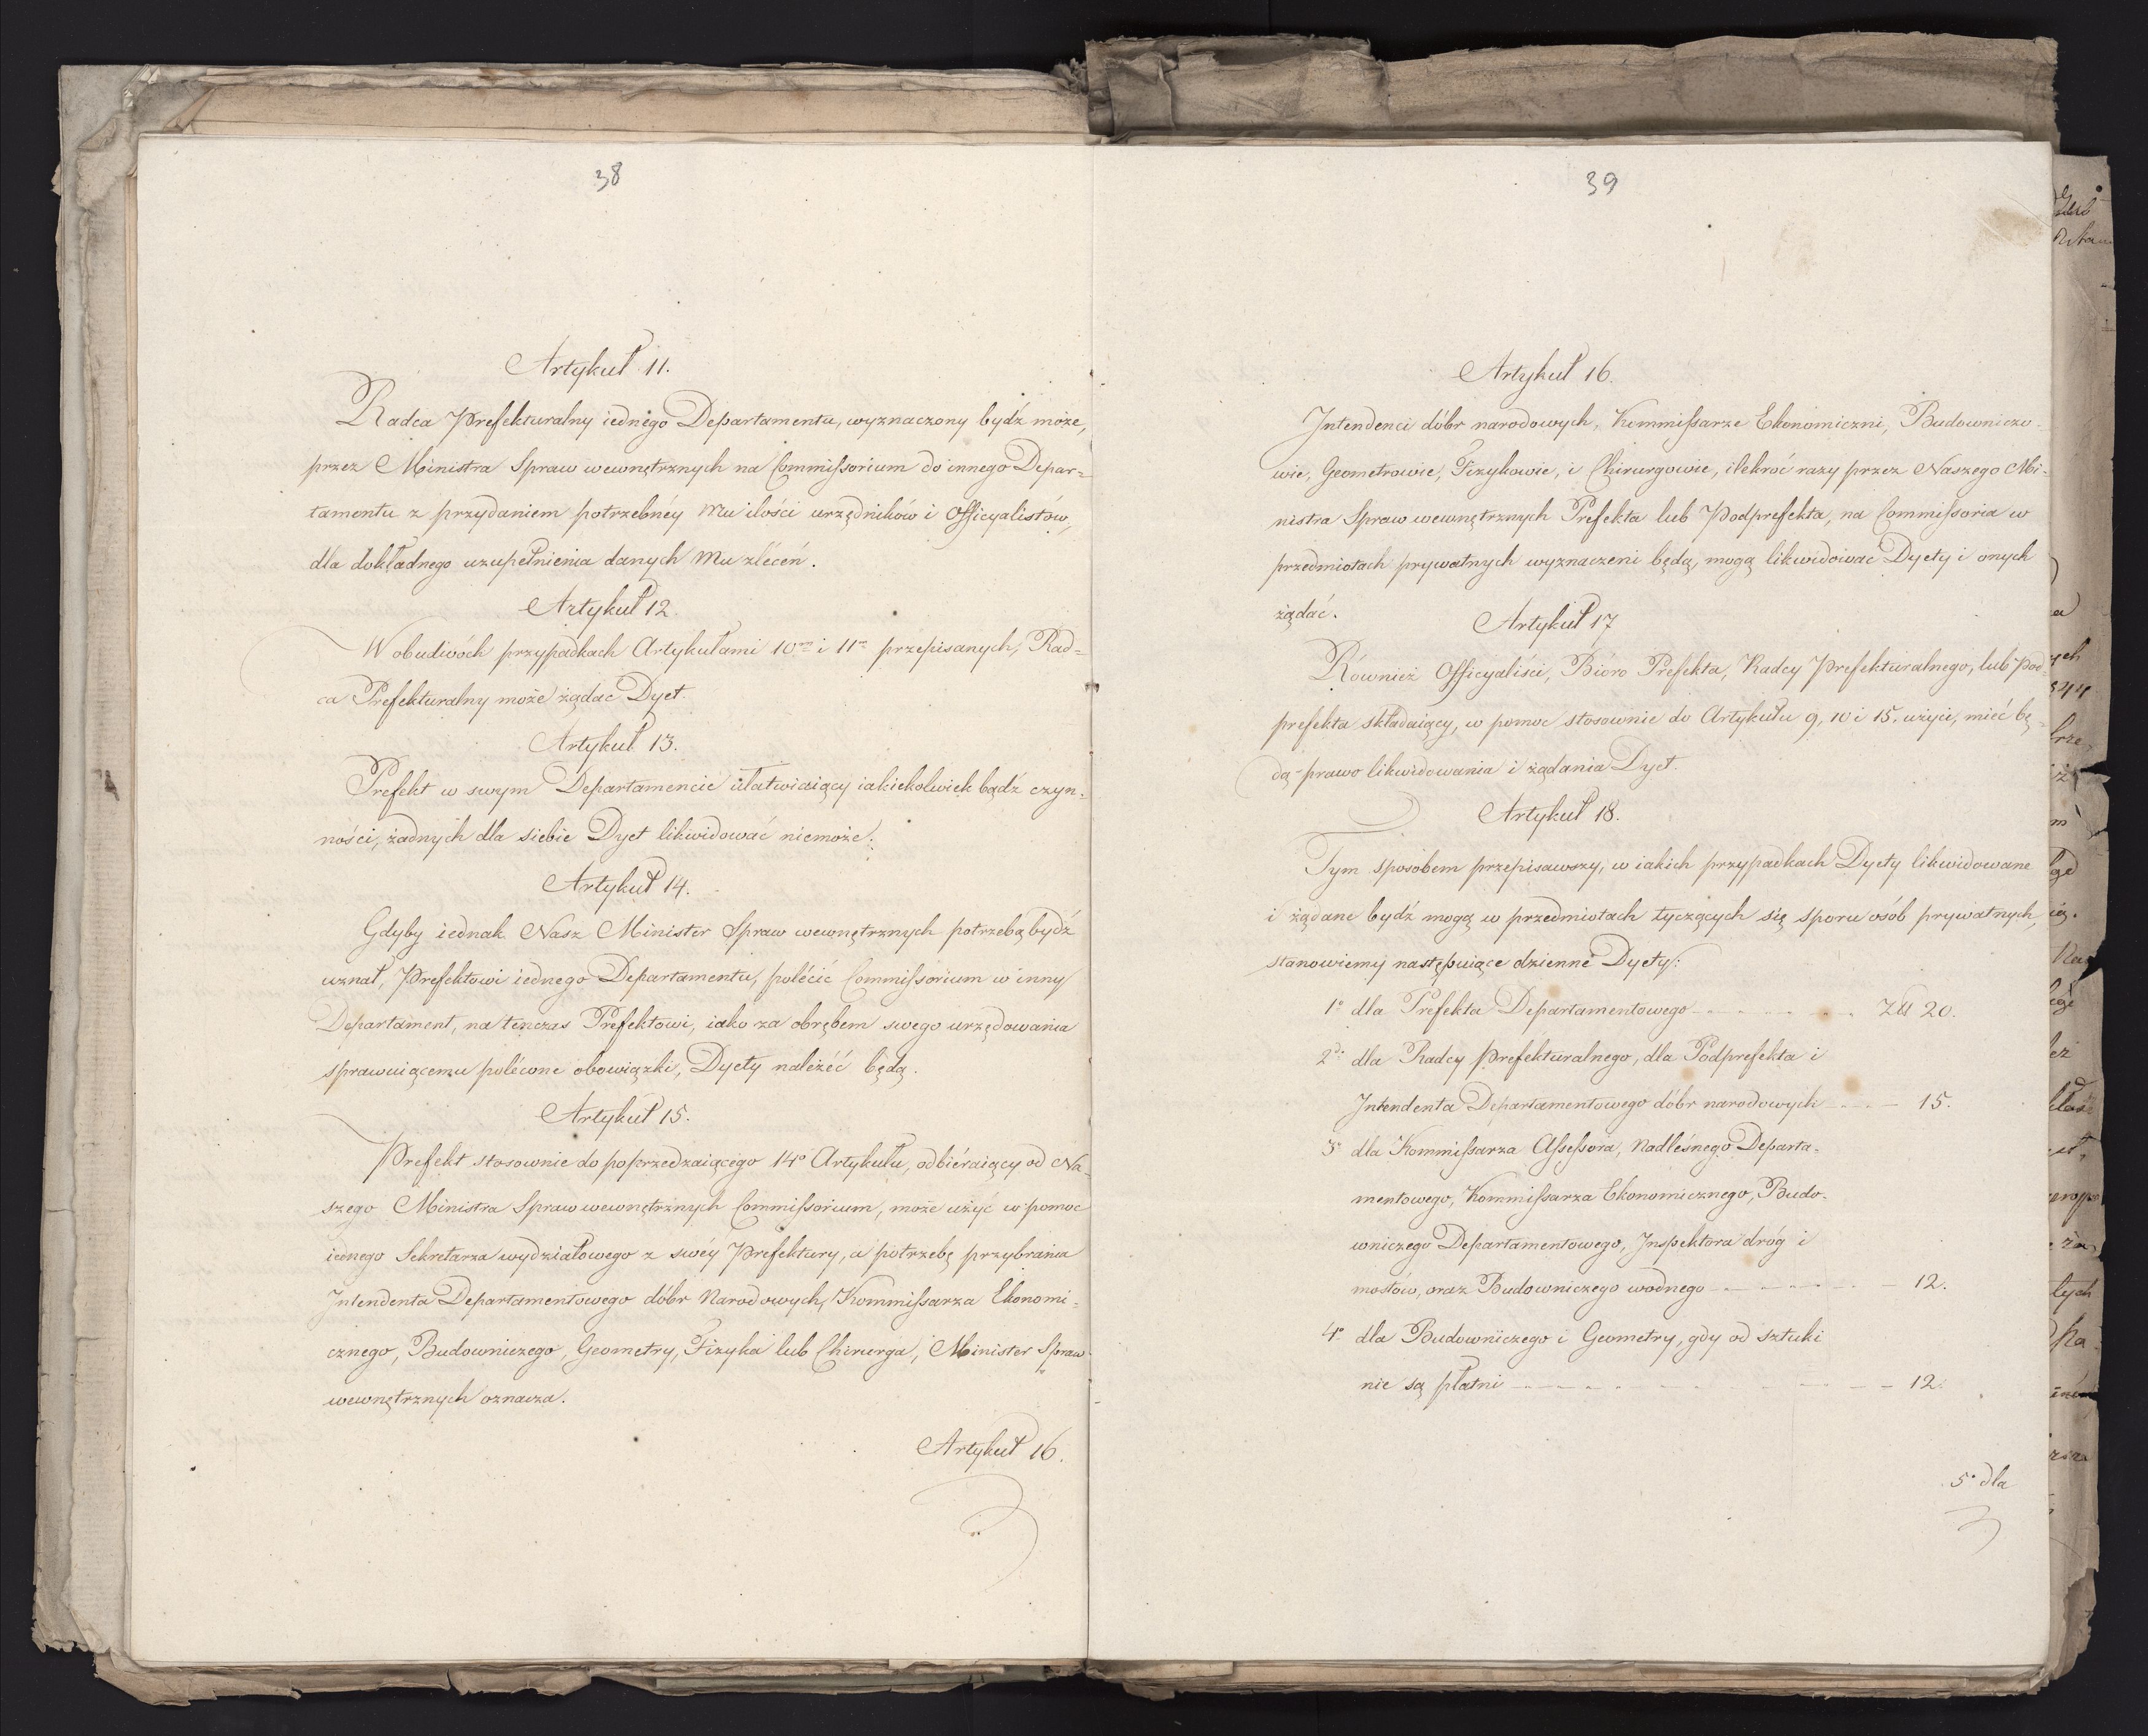 38
Artykuł 11.
Radca Prefekturalny iednego Departamentu, wyznaczony bydź może,
przez Ministra Spraw wewnętrznych na Commissorium do innego Depar=
tamentu z przydaniem potrzebnéy Mu ilości urzędników i Officyalistów,
dla dokładnego uzupełnienia danych Mu zleceń.
Artykuł 12.
W obudwóch przypadkach Artykułami 10mo i 11mo przepisanych, Rad=
ca Prefekturalny może żądać Dyet.
Artykuł 13.
Prefekt w swym Departamencie ułatwiaiący iakiekolwiek bądź czyn=
ności, żadnych dla siebie Dyet likwidować niemoże.
Artykuł 14.
Gdyby iednak Nasz Minister Spraw wewnętrznych potrzebą bydź
uznał, Prefektowi iednego Departamentu, polécić Commissorium w inny
Departament, na tenczas Prefektowi, iako za obrębem swego urzędowania
sprawuiącemu polécone obowiązki, Dyety należéć będą.
Artykuł 15.
Prefekt stosownie do poprzedzaiącego 14o Artykułu, odbiéraiący od Na=
szego Ministra Spraw wewnętrznych Commissorium, może użyć w pomoc
iednego Sekretarza wydziałowego z swéy Prefektury, a potrzebę przybrania
Intendenta Departamentowego dóbr Narodowych, Kommissarza Ekonomi=
cznego, Budowniczego, Geometry, Fizyka lub Chirurga, Minister Spraw
wewnętrznych oznacza.
Artykuł 16.
39
Artykuł 16.
Intendenci dóbr narodowych, Kommissarze Ekonomiczni, Budowniczo=
wie, Geometrowie, Fizykowie, i Chirurgowie, ilekroć razy przez Naszego Mi=
nistra Spraw wewnętrznych Prefekta lub Podprefekta, na Commissoria w
przedmiotach prywatnych wyznaczeni będą, mogą likwidować Dyety i onych
żądać.
Artykuł 17
Również Officyaliści, Bióro Prefekta, Radcy Prefekturalnego, lub Pod=
prefekta składaiący, w pomoc stosownie do Artykułu 9, 10 i 15. użyci, mieć bę=
dą prawo likwidowania i żądania Dyet.
Artykuł 18.
Tym sposobem przepisawszy, w iakich przypadkach Dyety likwidowane
i żądane bydź mogą w przedmiotach tyczących się sporu osób prywatnych,
stanowiemy następuiące dzienne Dyety:
1o dla Prefekta Departamentowego - - - - - - Złł 20.
2do dla Radcy Prefekturalnego, dla Podprefekta i
Intendenta Departamentowego dóbr narodowych - - - 15.
3o dla Kommissarza Assessora, Nadleśnego Departa=
mentowego, Kommissarza Ekonomicznego, Budo=
wniczego Departamentowego, Inspektora dróg i
mostów, oraz Budowniczego wodnego - - - - - - 12.
4o dla Budowniczego i Geometry, gdy od sztuki
nie są płatni - - - - - - - - - 12.
5o dla